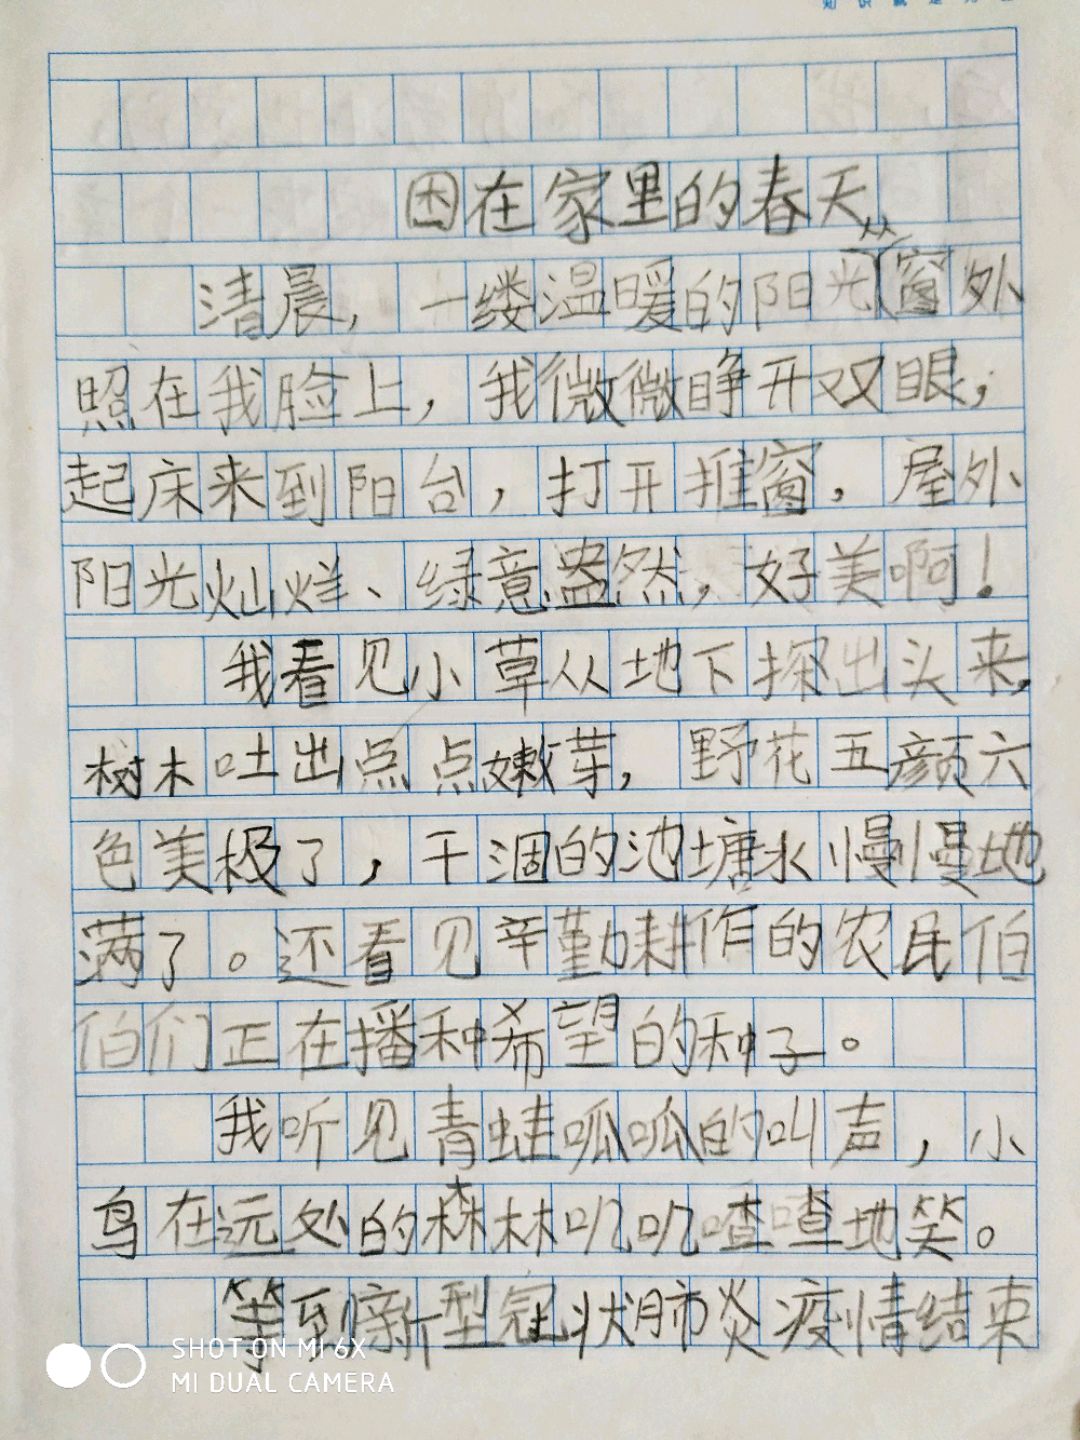 困在家里的春天
清晨，一缕温暖的阳光从窗外
照在我脸上，我微微睁开双眼，
起床来到阳台，打开推窗，屋外
阳光灿烂、绿意盎然，好美啊！
我看见小草从地下探出头来，
树木吐出点点嫩芽，野花五颜六
色美极了，干涸的池塘水慢慢地
满了。还看见辛勤耕作的农民伯
伯们正在播种希望的种子。
我听见青蛙呱呱的叫声，小
鸟在远处的森林叽叽喳喳地笑。
等到新型冠状肺炎疫情结束
SHOT ON MI 6X
MI DUAL CAMERA